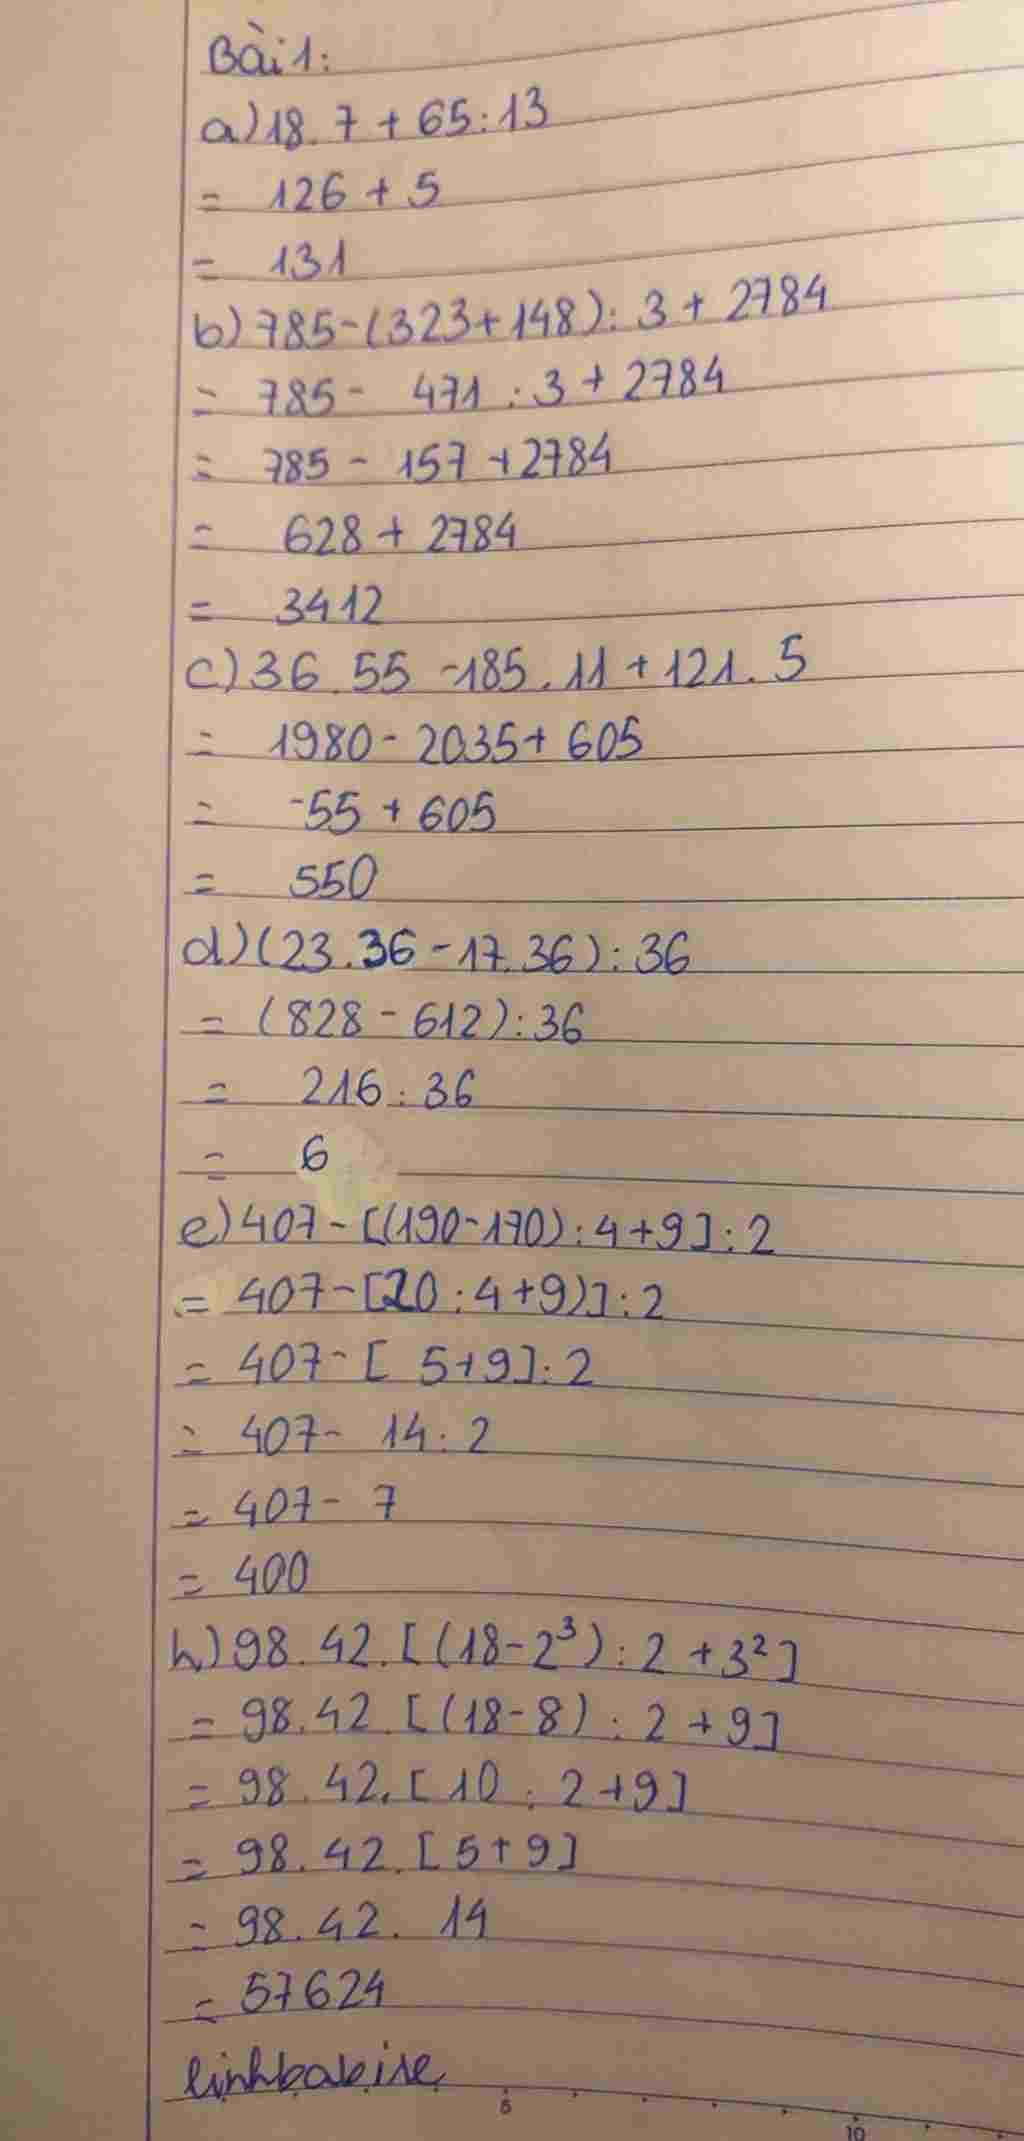 Bài 1:
a) 18.7 + 65:13
= 126 + 5
= 131
b) 785-(323+148): 3 + 2784
= 785 - 471 : 3 + 2784
= 785 - 157 + 2784
= 628 + 2784
= 3412
c) 36.55 -185.11 + 121.5
= 1980 - 2035 + 605
= -55 + 605
= 550
d) (23.36 - 17.36) : 36
= (828 - 612) : 36
= 216 : 36
= 6
e) 407 - [(190-170) : 4 + 9] : 2
= 407 - [20 : 4 + 9)] : 2
= 407 - [ 5+9] : 2
= 407 - 14 : 2
= 407 - 7
= 400
h) 98.42.[(18-2³) : 2 + 3²]
= 98.42.[(18-8) : 2 + 9]
= 98.42.[10 : 2+9]
= 98.42.[5+9]
= 98.42. 14
= 57624
linhbabire
5 10